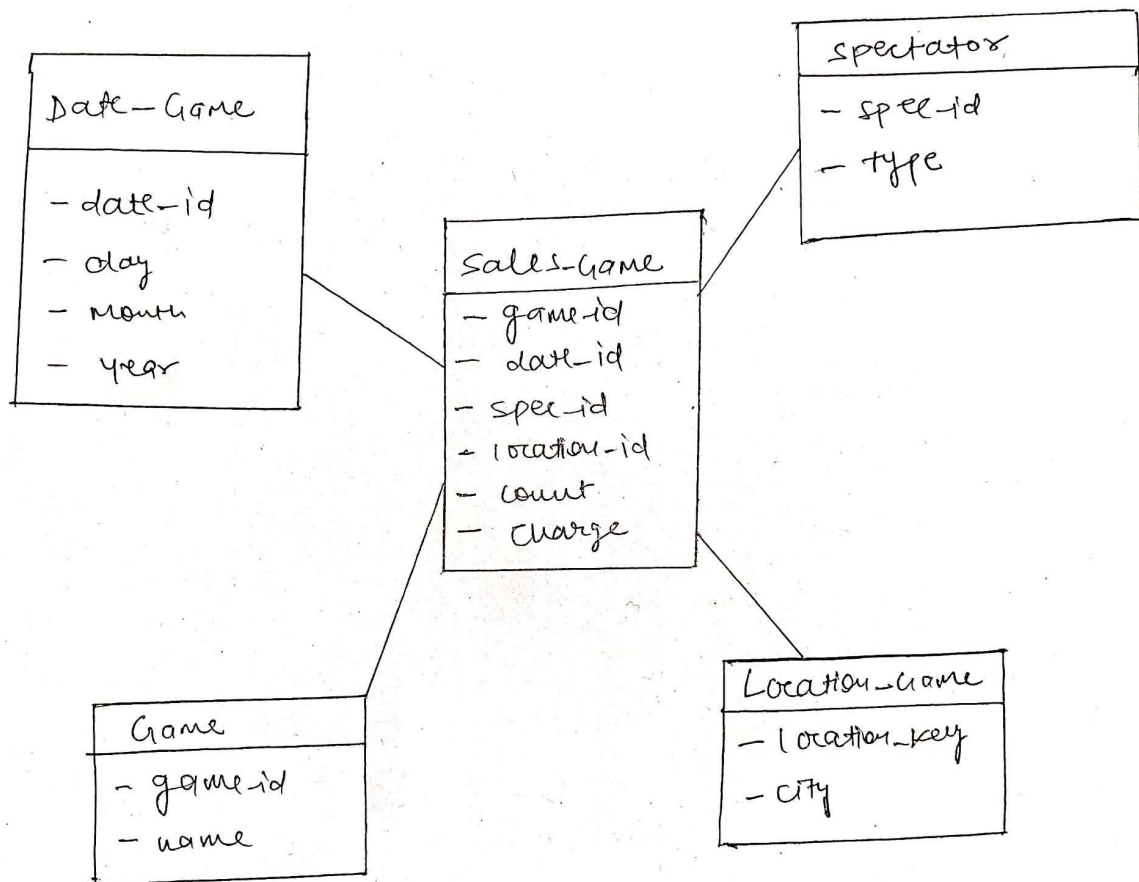 Date-Game
- date-id
- day
- Month
- year
Spectator
- spec-id
- type
Sales-Game
- game-id
- date-id
- spec-id
- location-id
- count
- charge
Game
- game-id
- name
Location-Game
- location-key
- city